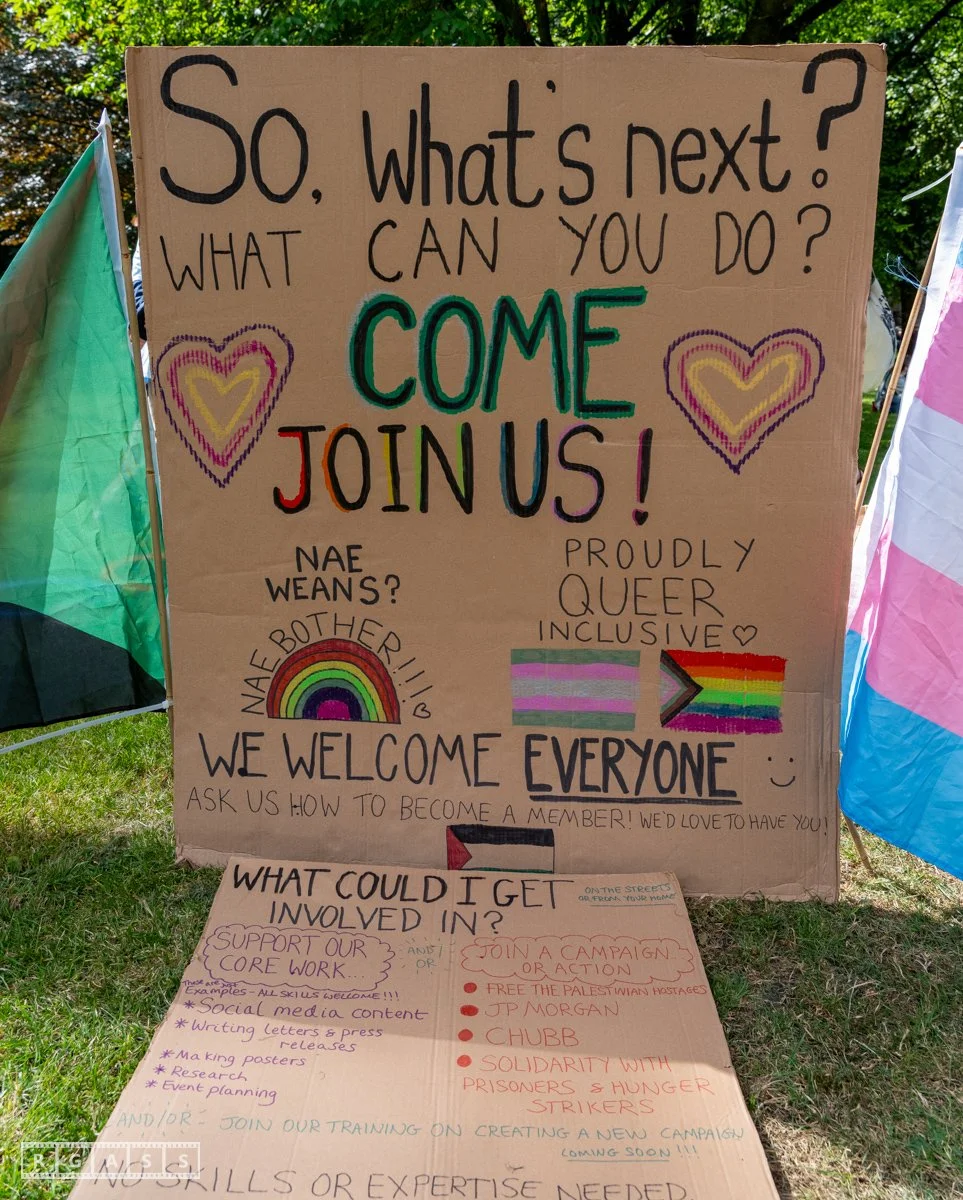 So, what's next?
WHAT CAN YOU DO?
COME
JOIN US!
NAE
WEANS?
NAE BOTHER!!!
PROUDLY
QUEER
INCLUSIVE
WE WELCOME EVERYONE
ASK US HOW TO BECOME A MEMBER! WE'D LOVE TO HAVE YOU!
WHAT COULD I GET
INVOLVED IN?
ON THE STREETS
OR FROM YOUR HOME
SUPPORT OUR
CORE WORK...
AND/
OR
These are just
Examples - ALL SKILLS WELCOME!!!
* Social media content
* Writing letters & press
releases
* Making posters
* Research
* Event planning
JOIN A CAMPAIGN
OR ACTION
FREE THE PALESTINIAN HOSTAGES
JP MORGAN
CHUBB
SOLIDARITY WITH
PRISONERS & HUNGER
STRIKERS
AND/OR - JOIN OUR TRAINING ON CREATING A NEW CAMPAIGN
COMING SOON!!!
NO SKILLS OR EXPERTISE NEEDED
RGASS